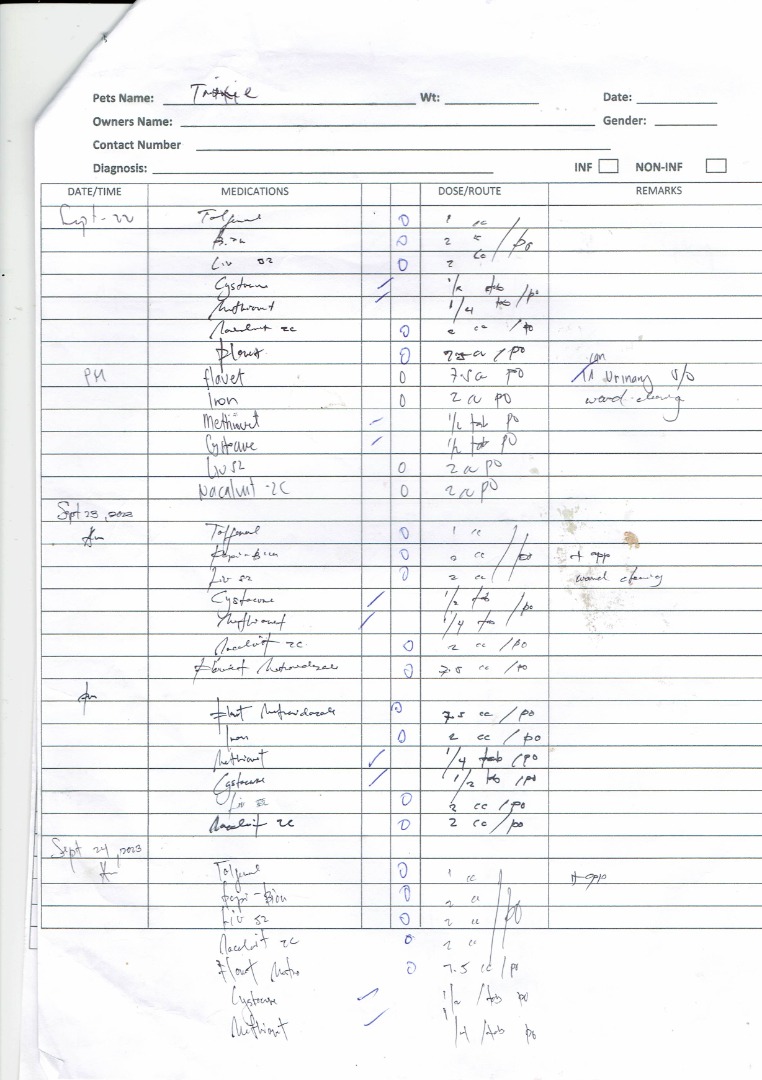 Pets Name: Trixie Wt: Date:
Owners Name: Gender:
Contact Number
Diagnosis: INF NON-INF
DATE/TIME MEDICATIONS DOSE/ROUTE REMARKS
Sept-22 Tolfenol 0 1 cc
0 2 cc /po
Liv 52 0 2 cc
Cystocure / 1/2 tab /po
Methiovet / 1/4 tab
Nacalvit 2C 0 2 cc /po
0 7.5 cc / po
PM flovet 0 7.5 cc po Urinary s/o
Iron 0 2 cc po wound cleaning
Methiovet / 1/2 tab po
Cystocure / 1/2 tab po
Liv 52 0 2 cc po
Nacalvit-2C 0 2 cc po
Sept 23, 2023
Am Tolfenol 0 1 cc
Papi-Bion 0 2 cc /po + app
Liv 52 0 2 cc wound cleaning
Cystocure / 1/2 tab /po
Methiovet / 1/4 tab
Nacalvit 2C 0 2 cc /po
Metronidazole 0 7.5 cc /po
pm Metronidazole 0 7.5 cc / po
Iron 0 2 cc / po
Methiovet / 1/4 tab /po
Cystocure / 1/2 tab /po
Liv 52 0 2 cc /po
Nacalvit 2C 0 2 cc / po
Sept 24, 2023
Am Tolfenol 0 1 cc + app
Papi-Bion 0 2 cc /po
Liv 52 0 2 cc
Nacalvit 2C 0 2 cc
Metro 0 7.5 cc / po
Cystocure / 1/2 /tab po
Methiovet / 1/4 /tab po